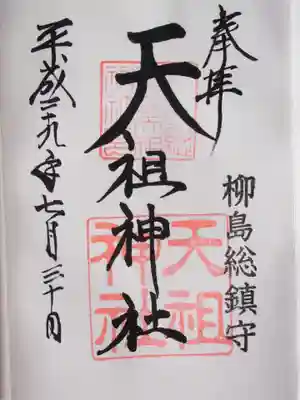 奉拝
柳島総鎮守
天祖神社
天祖
神社
平成二九年七月三十日